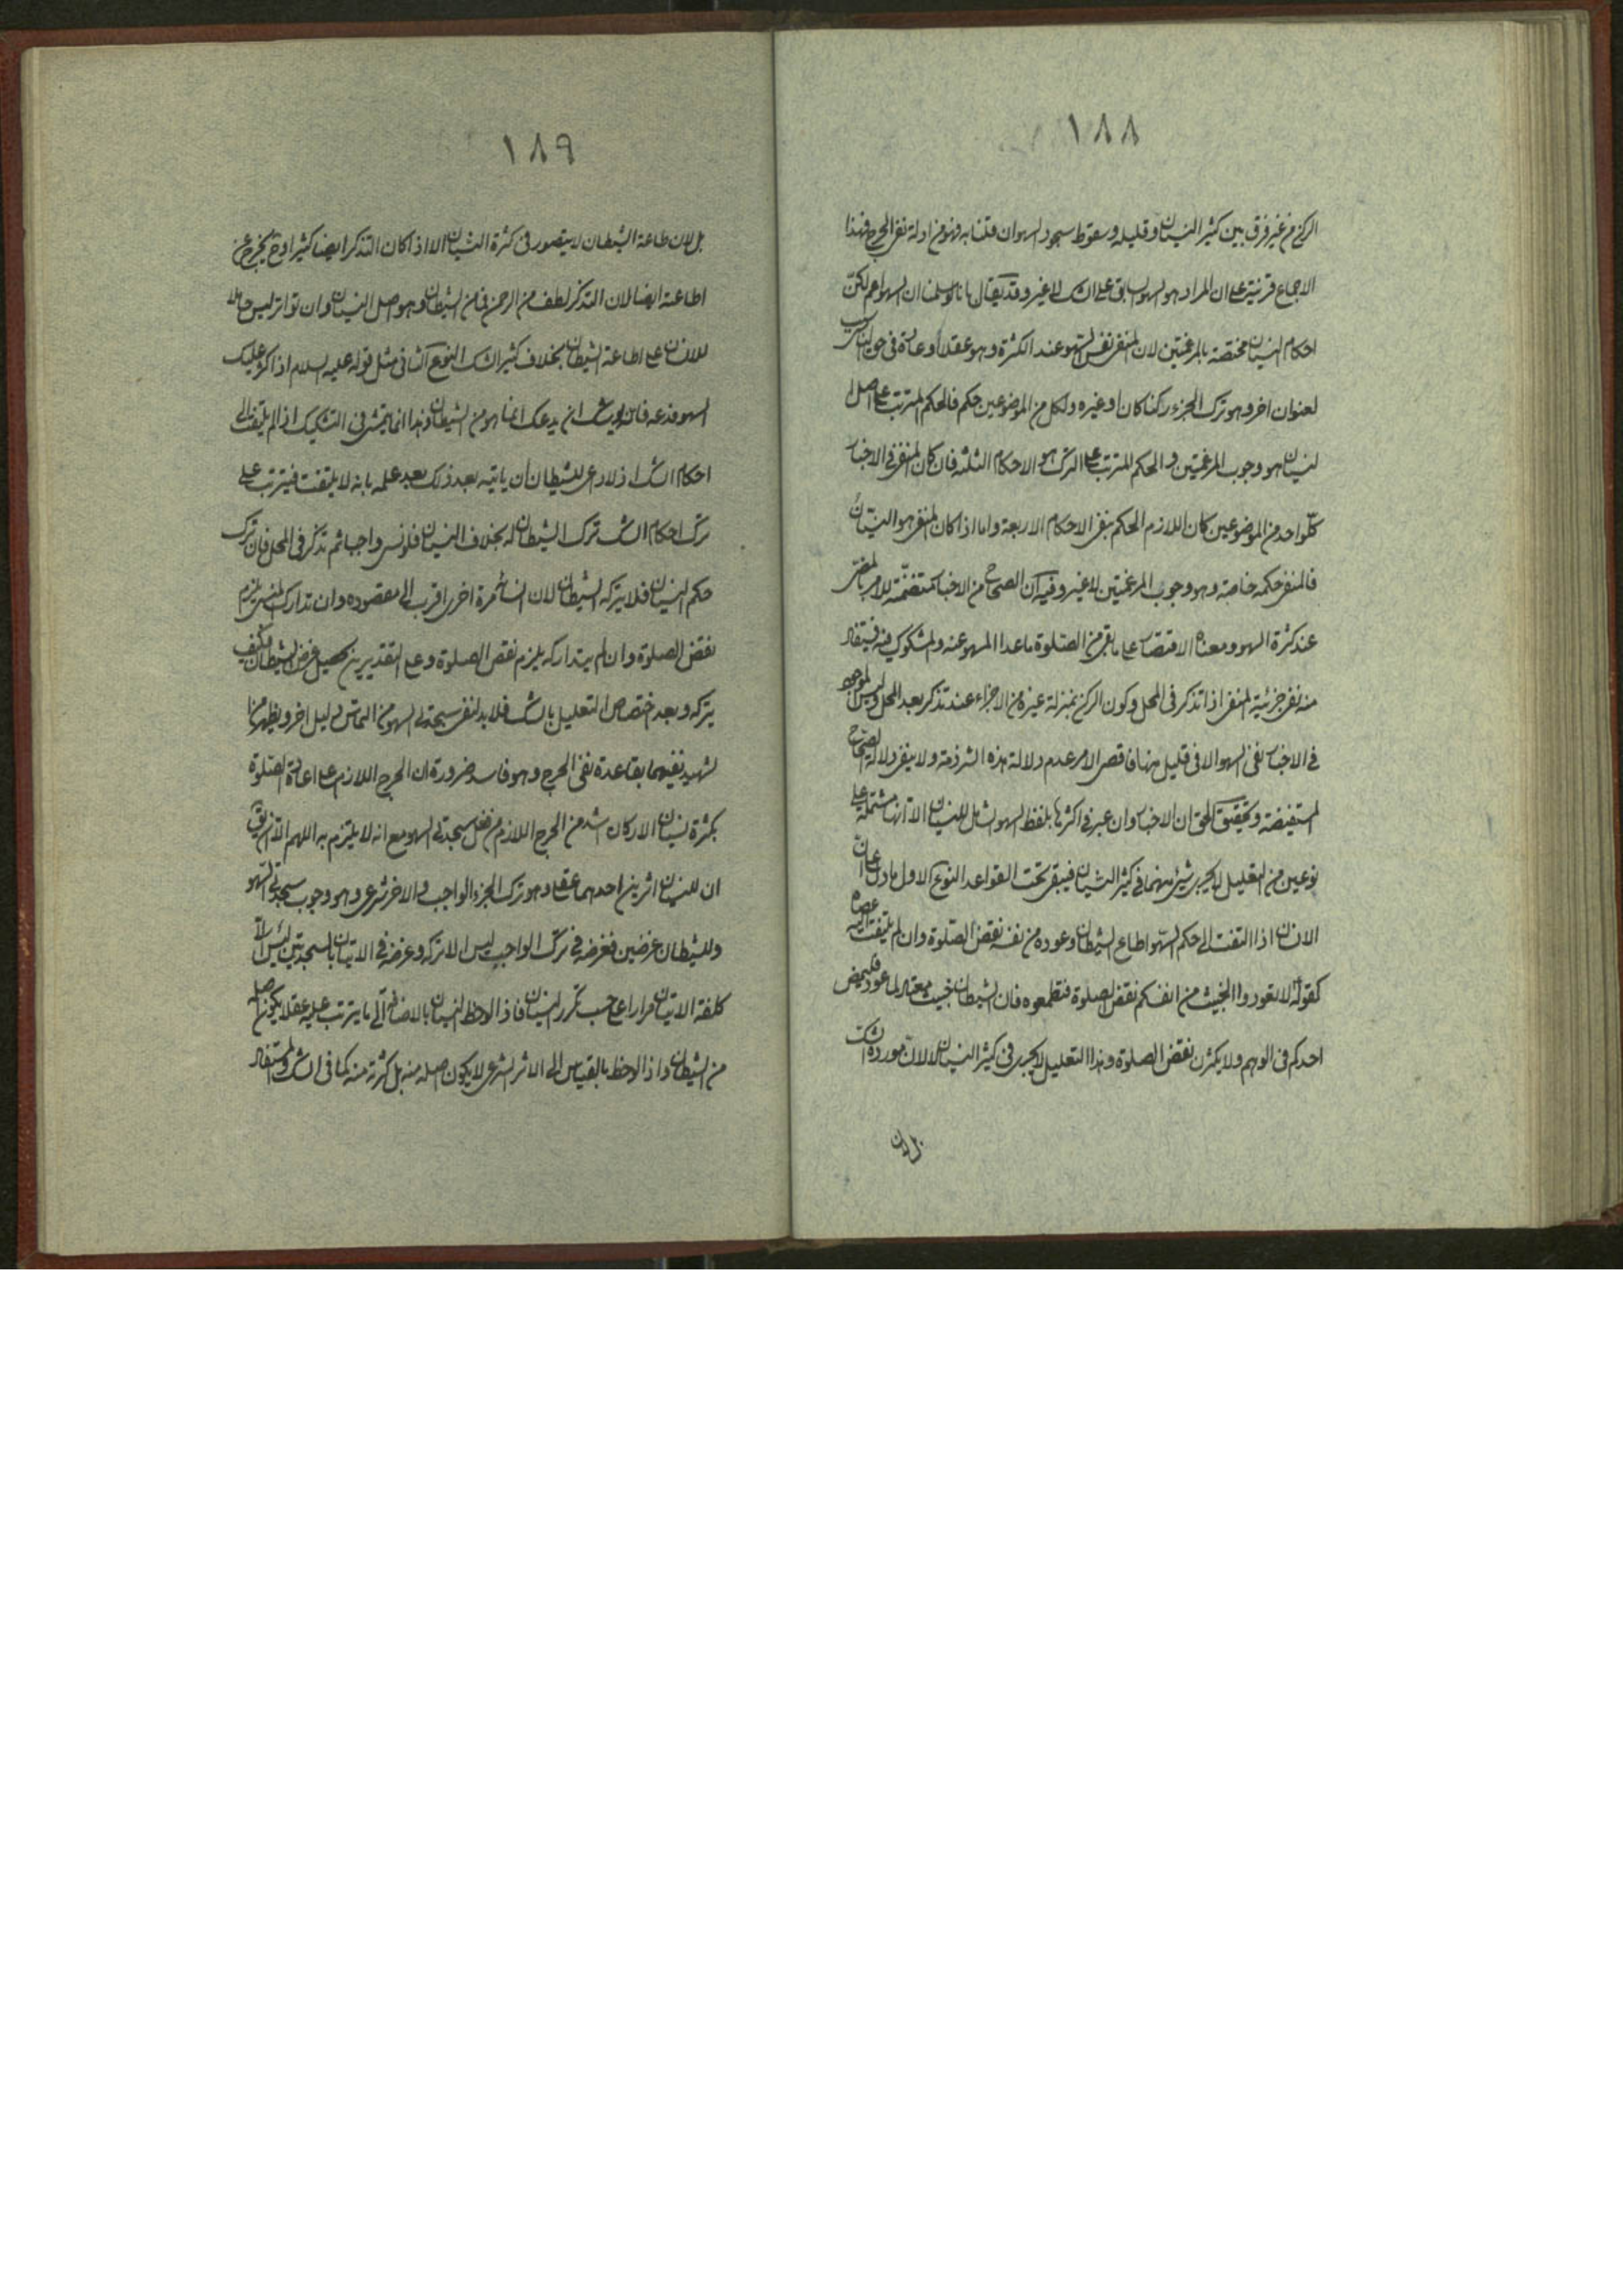 ١٨٨
الركن من غير فرق بين كثير النسيان وقليله وسقوط سجود السهو ان قلنا به فهو من ادلة نفى الحرج فهذا
الاجماع قرينة على ان المراد هو السهو فى الشك لا غير وقد يقال بانا لو سلمنا ان السهو اعم لكن
احكام النسيان مختصة بالمرغمتين لان المنفى نفس السهو عند الكثرة وهو عقلا وعادة فى حق الناس
لعنوان اخر وهو ترك الجزء ركنا كان او غيره ولكل من الموضوعين حكم فالحكم المترتب على اصل
النسيان هو وجوب المرغمتين والحكم المترتب على الترك هو الاحكام الثلثة فان كان المنفى فى الاخبار
كلّ واحد من الموضوعين كان اللازم الحكم بنفى الاحكام الاربعة واما اذا كان المنفى هو النسيان
فالمنفى حكمه خاصة وهو وجوب المرغمتين لا غير وفيه ان الصحاح من الاخبار متضمّنة للامر بالمضى
عند كثرة السهو ومعناه الاقتصار على ما بقى من الصّلوة ما عدا المسهو عنه والمشكوك فيه فيستفاد
منه نفى جزئية المنفى اذا تذكر فى المحل وكون الركن بمنزلة غيره من الاجزاء عند تذكر بعد المحل وليس الموجود
فى الاخبار نفى السهو الا فى قليل منها فاقصى الامر عدم دلالة هذه الشرذمة ولا ينفى دلالة الصحاح
المستفيضة وتحقيق الحق ان الاخبار وان عبر فى اكثرها بلفظ السهو الشامل للنسيان الا انها مشتملة على
نوعين من التعليل لا يجرى شئ منهما فى كثير النسيان فيبقى تحت القواعد النوع الاول ما دل على ان
الانسان اذا التفت الى حكم السّهو اطاع الشيطان وعوده من نفسه نقض الصّلوة وان لم يلتفت اليه عصاه
كقوله لا تعودوا الخبيث من انفسكم نقض الصلوة فتطمعوه فان الشيطان خبيث معتاد لما عود فليمض
احدكم فى الوهم ولا يكثرن نقض الصلوة وهذا التعليل لا يجرى فى كثير النسيان لا لانّ مورده الشك
بل لان
١٨٩
بل لان طاعة الشيطان لا يتصور فى كثرة النسيان الا اذا كان التذكر ايضا كثيرا وح يخرج عن
اطاعة ايضا لان التذكر لطف من الرحمن فما من الشيطان وهو اصل النسيان وان تواتر ليس حاملا
للانسان على اطاعة الشيطان بخلاف كثير الشك النوع الثانى مثل قوله عليه السلام اذا كثر عليك
السهو فدعه فانه يوشك ان يدعك انما هو من الشيطان وهذا انما يتمشى فى التشكيك اذا لم يلتفت الى
احكام الشك اذ لا داعى للشيطان ان ياتيه بعد ذلك بعد علمه بانه لا يلتفت فيترتب على
ترك احكام الشك ترك الشيطان له بخلاف النسيان فلو نسى واجبا ثم تذكر فى المحل فان ترك
حكم النسيان فلا يتركه الشيطان لان انسائه مرة اخرى اقرب الى مقصوده وان تدارك المنسى يلزم
نقض الصلوة وان لم يتداركه يلزم نقص الصلوة وعلى التقديرين يحصل غرض الشيطان فكيف
يتركه وبعد اختصاص التعليل بالشك فلا بد لنفى سجدتى السهو من التماس دليل اخر ويظهر من
الشهيد نفيهما بقاعدة نفى الحرج وهو فاسد ضرورة ان الحرج اللازم على اعادة الصّلوة
بكثرة نسيان الاركان اشد من الحرج اللازم من فعل سجدتى السهو مع انه لا يلتزم به اللهم الا ان يقال
ان للنسيان اثرين احدهما عقلى وهو ترك الجزء الواجب والاخر شرعى وهو وجوب سجدتى السّهو
وللشيطان غرضين فغرضه فى ترك الواجب ليس الا تركه وغرضه فى الاتيان بالسجدتين ليس الا
كلفة الاتيان مرارا على حسب تكرر النسيان فاذا لوحظ النسيان بالاضافة الى ما يترتب عليه عقلا يكون اصله
من الشيطان واذا لوحظ بالقياس الى الاثر الشرعى لا يكون اصله منه بل كثرته منه كما فى الشك والمستفاد